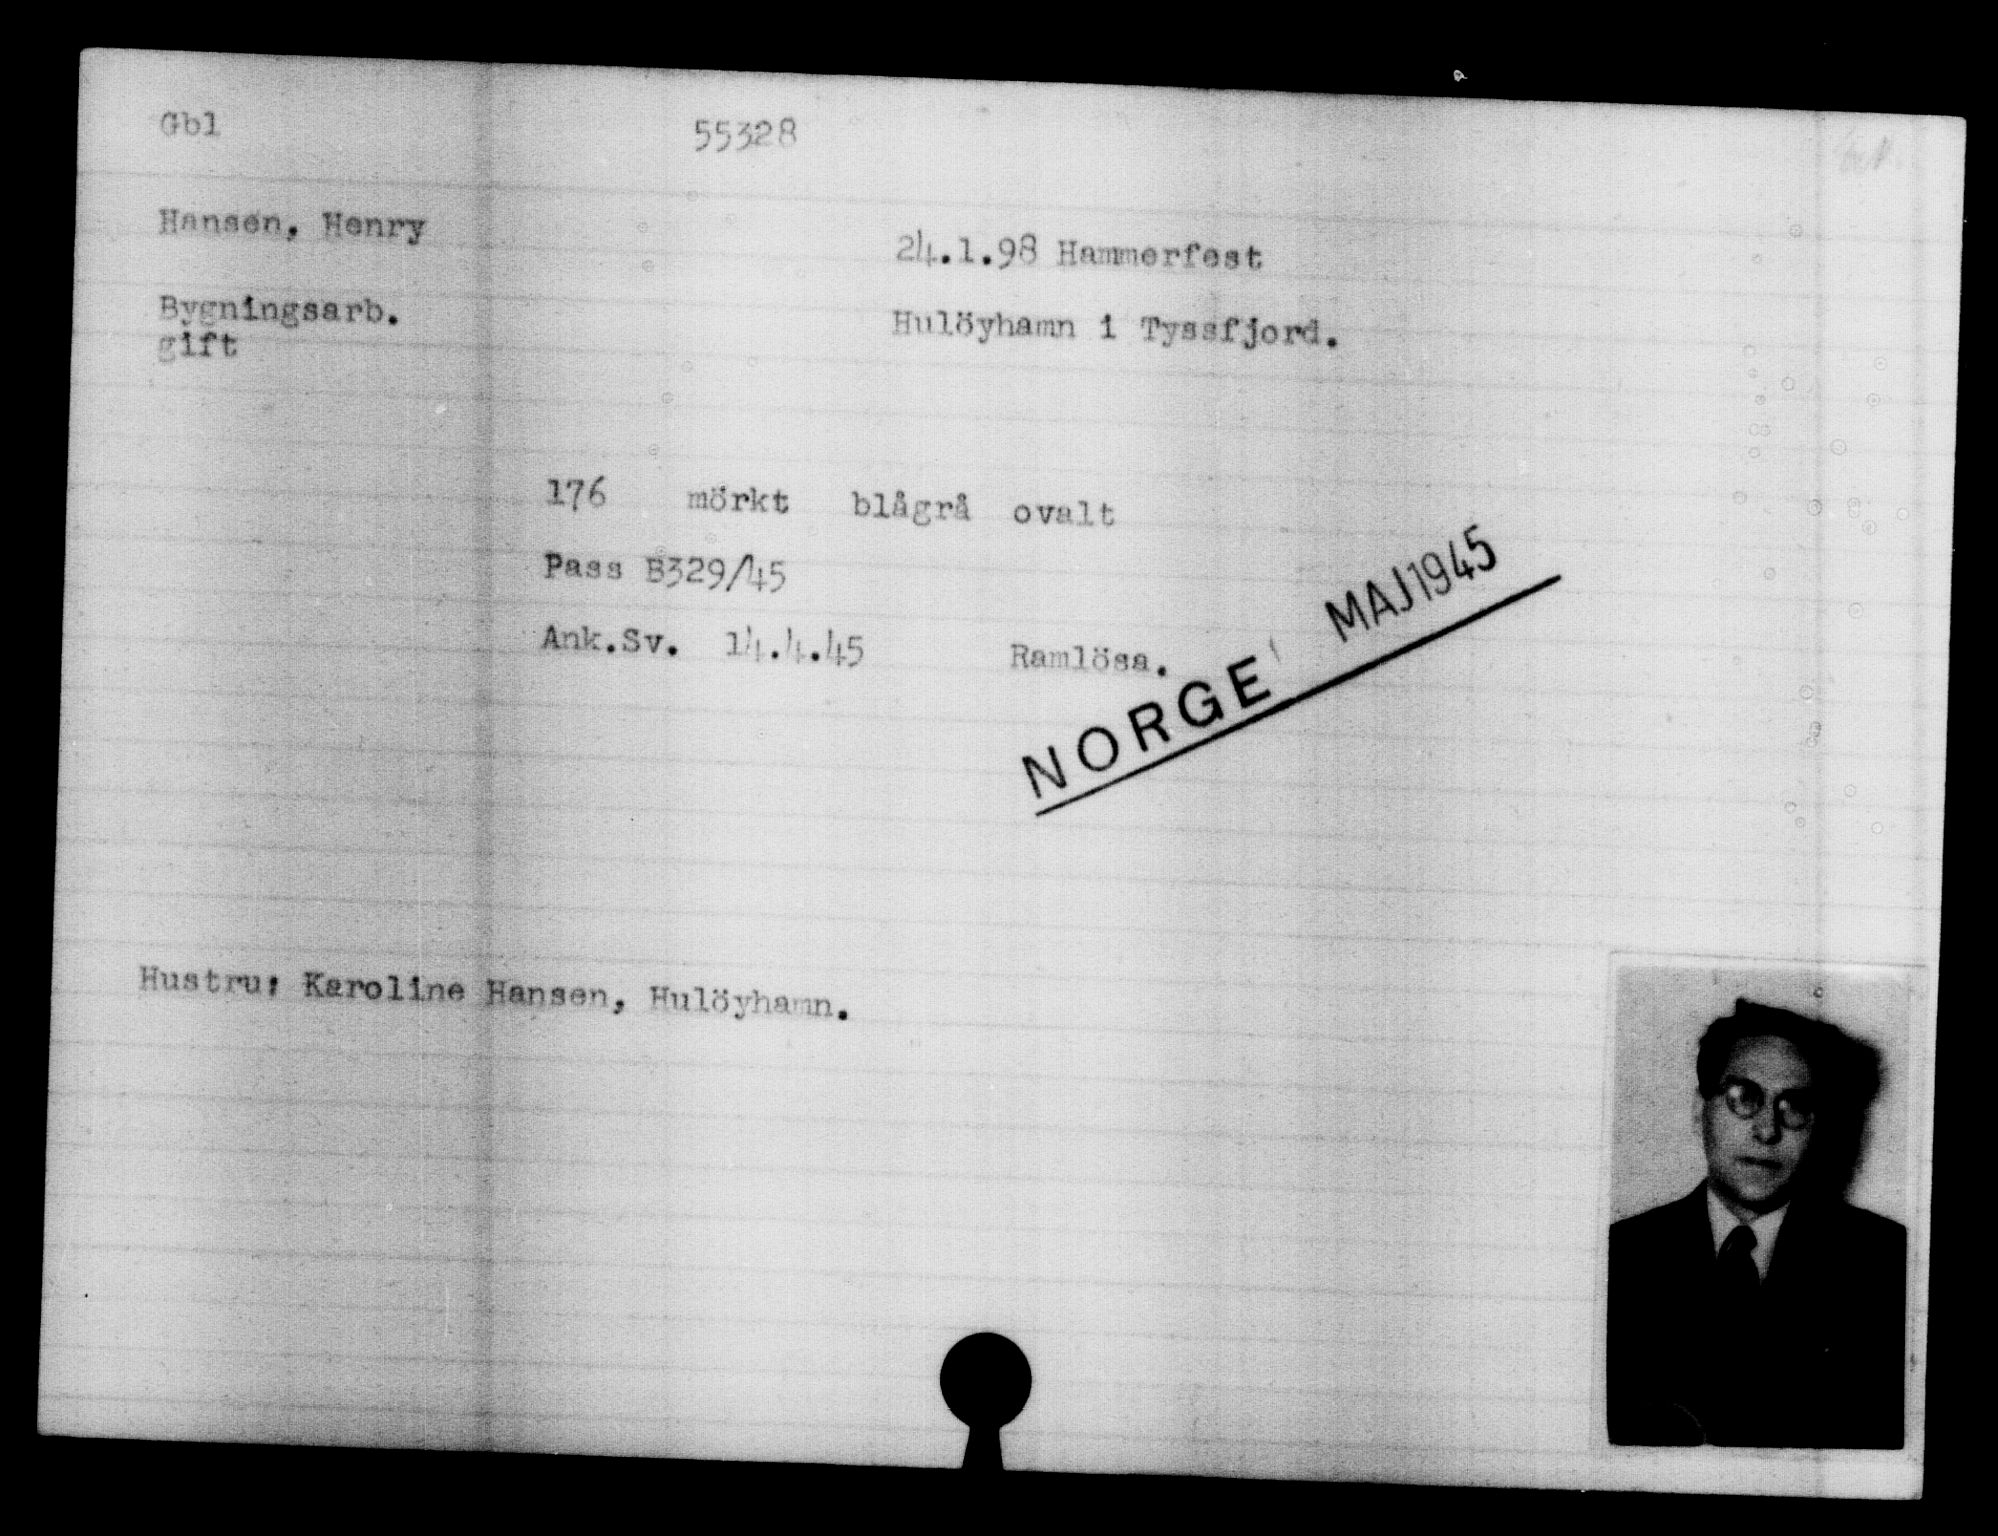 Gbl 55328
Hansen, Henry
24.1.98 Hammerfest
Bygningsarb.
gift
Hulöyhamn i Tyssfjord.
176 mörkt blågrå ovalt
Pass B329/45
Ank.Sv. 14.4.45 Ramlösa.
NORGE MAJ 1945
Hustru: Karoline Hansen, Hulöyhamn.